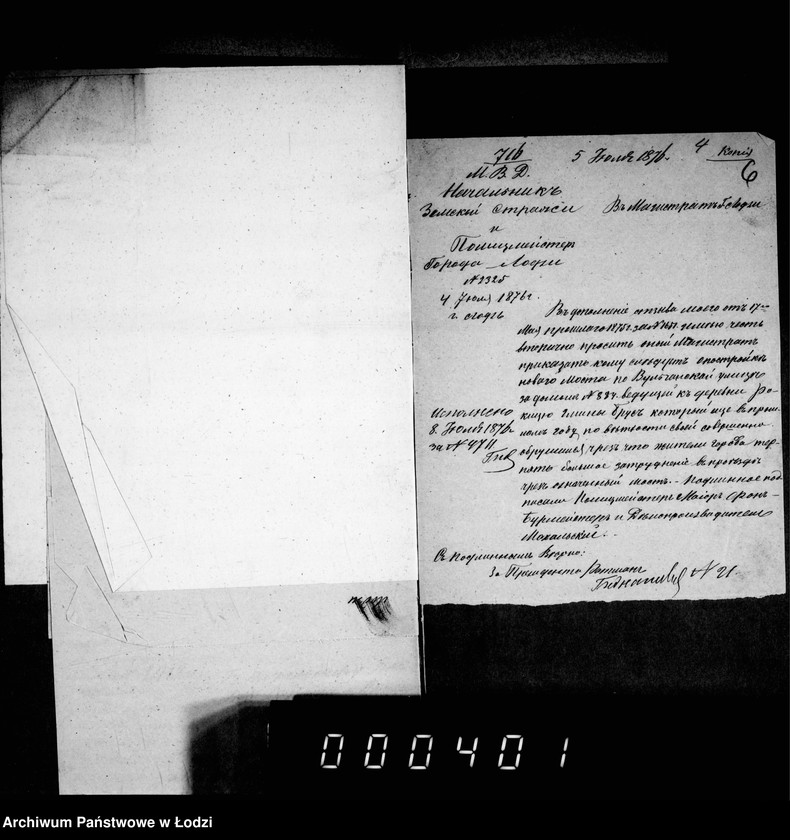 716
5 Июля 1876.
4
Копія
6
М. В. Д.
Начальникъ
Земской Стражи
Въ Магистратъ г. Лодзи
и
Полицмейстеръ
Города Лодзи
4 Июля 1876 г.
г. Лодзь
Въ дополненіе отзыва моего отъ 17
Мая прошлаго 1875 г. за № имѣю честь
вторично просить оный Магистратъ
приказать кому слѣдуетъ о постройкѣ
новаго моста по Вульчанской улицѣ
за домомъ № ведущей къ деревни Ро-
кицю Гмины Брусъ который еще въ прош-
ломъ году по вѣтхости своей совершенно
обрушился, чрезъ что жители города тер-
пятъ большое затрудненіе въ проѣздѣ
чрезъ означенный мостъ. - Подлинное под-
писали Полицмейстеръ Маіоръ Фонъ-
Бурмейстеръ и Дѣлопроизводитель
Махальскій.
Исполнено
8. Июля 1876 г.
за № 4711
Съ подлиннымъ вѣрно:
За Президента Ратманъ
№ 21.
000401
Archiwum Państwowe w Łodzi